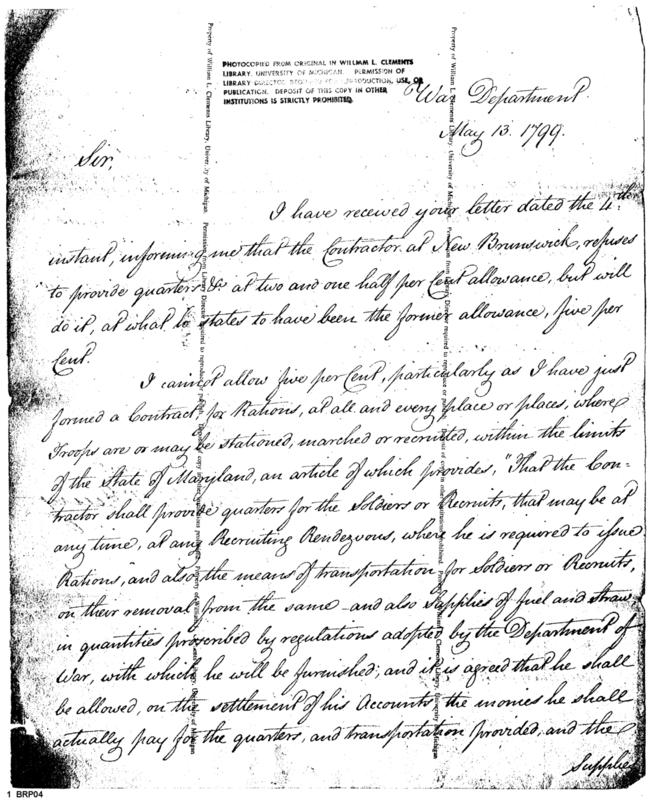 PHOTOCOPIED FROM ORIGINAL IN WILLIAM L. CLEMENTS
LIBRARY, UNIVERSITY OF MICHIGAN. PERMISSION OF
LIBRARY DIRECTOR REQUIRED FOR REPRODUCTION, USE, OR
PUBLICATION. DEPOSIT OF THIS COPY IN OTHER
INSTITUTIONS IS STRICTLY PROHIBITED.
War Department
May 13. 1799.
Sir,
I have received your letter dated the 4th
instant, informing me that the Contractor at New Brunswick, refuses
to provide quarters &c at two and one half per Cent allowance, but will
do it, at what he states to have been the former allowance, five per
Cent.
I cannot allow five per Cent, particularly as I have just
formed a Contract, for Rations, at all and every place or places, where
Troops are or may be stationed, marched or recruited, within the limits
of the State of Maryland, an article of which provides, "That the Con-
tractor shall provide quarters for the Soldiers or Recruits, that may be at
any time, at any Recruiting Rendezvous, where he is required to issue
Rations," and also the means of transportation for Soldiers or Recruits,
on their removal from the same and also Supplies of fuel and straw,
in quantities prescribed by regulations adopted by the Department of
War, with which he will be furnished; and it is agreed that he shall
be allowed, on the settlement of his Accounts the monies he shall
actually pay for the quarters, and transportation provided, and the
Supplies
Property of William L. Clements Library, University of Michigan. Permission from Library Director required to reproduce or
Property of William L. Clements Library, University of Michigan. Permission from Library Director required to reproduce or
1 BRP04